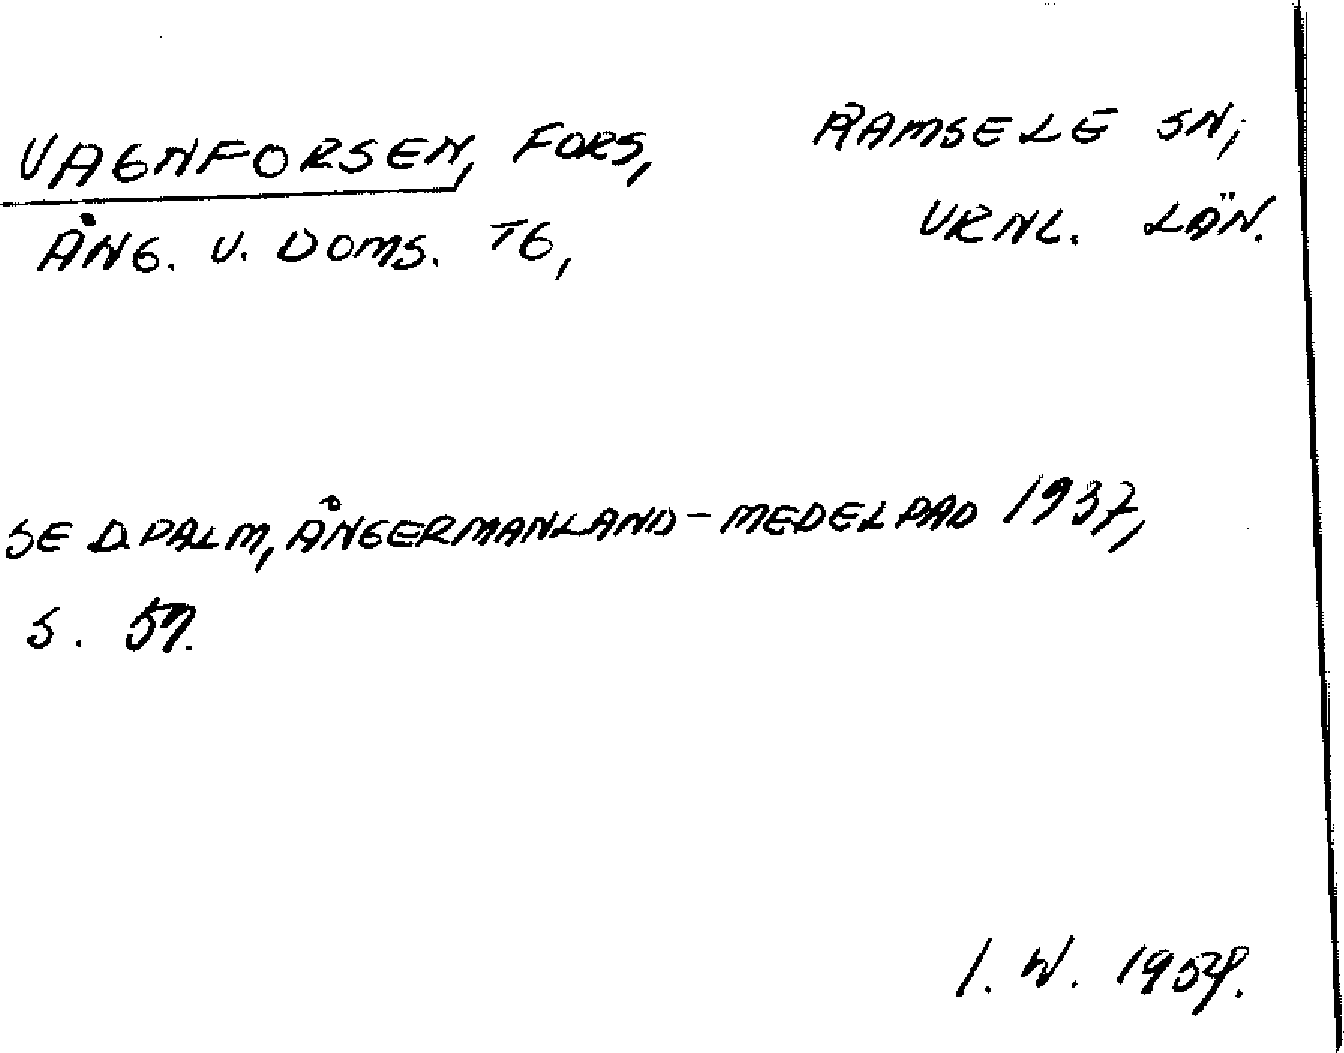 VAGNFORSEN, FORS, RAMSELE SN,
ÅNG. V. DOMS. TG, VRNL. LÄN.
SE D. PALM, ÅNGERMANLAND - MEDELPAD 1937,
S. 57.
I. W. 1959.